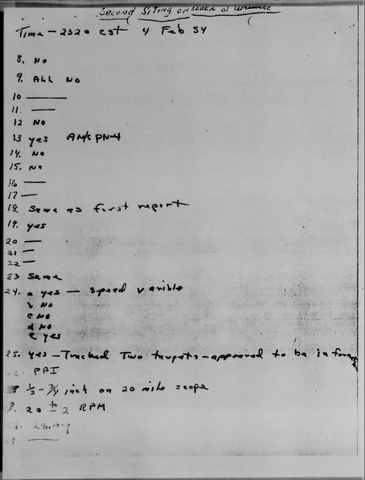 Second Siting on
Time - 2320 cst 4 Feb 54
8. No
9. ALL No
10
11.
12 No
13 yes AN/CPN-4
14. No
15. No
16
17
18. Same as first report
19. yes
20
21
22
23 Same
24. a yes - speed varible
b No
c No
d No
e yes
25. yes - Tracked Two targets - appeared to be in
PPI
1/2 - 3/4 inch on 20 mile scope
20 ± 2 RPM